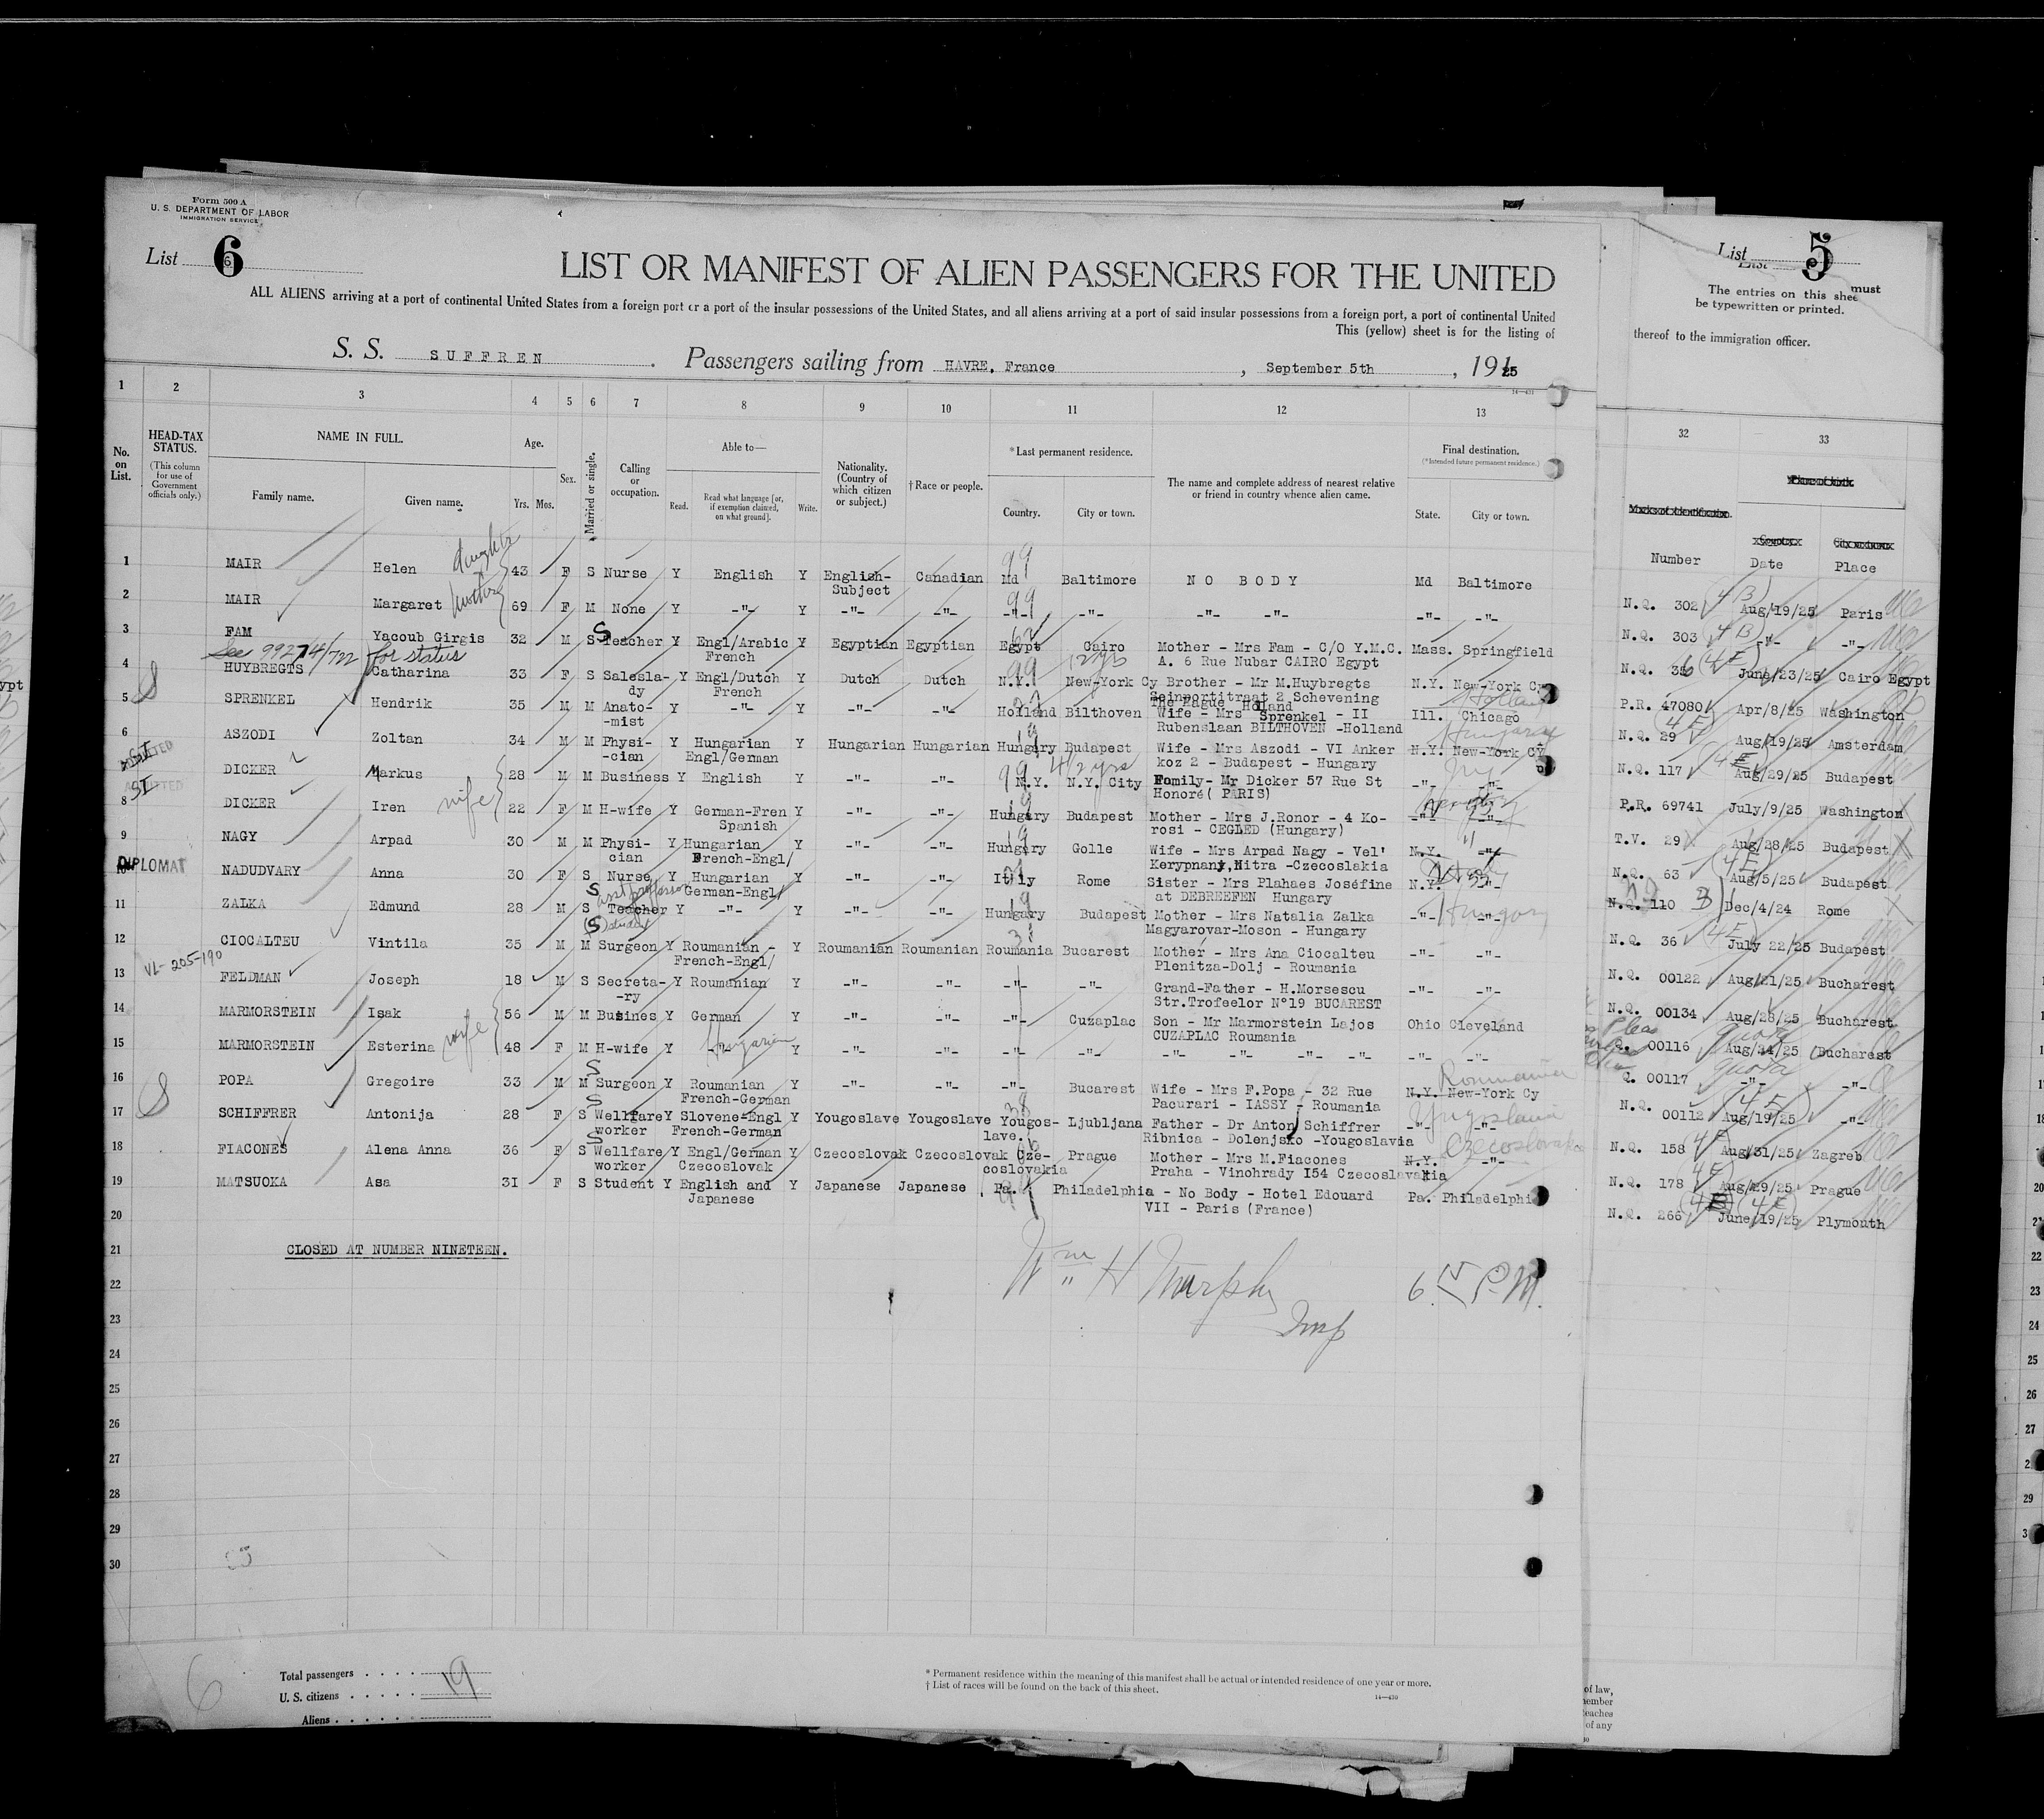 Form 500 A
U. S. DEPARTMENT OF LABOR
IMMIGRATION SERVICE
List 6
LIST OR MANIFEST OF ALIEN PASSENGERS FOR THE UNITED
ALL ALIENS arriving at a port of continental United States from a foreign port or a port of the insular possessions of the United States, and all aliens arriving at a port of said insular possessions from a foreign port, a port of continental United
This (yellow) sheet is for the listing of
S. S. SUFFREN. Passengers sailing from HAVRE, France, September 5th, 1925
List 5
The entries on this sheet must
be typewritten or printed.
thereof to the immigration officer.
1 2 3 4 5 6 7 8 9 10 11 12 13 32 33
No. on List.
HEAD-TAX STATUS.
(This column for use of Government officials only.)
NAME IN FULL.
Family name. Given name.
Age.
Yrs. Mos.
Sex.
Married or single.
Calling or occupation.
Able to—
Read. Read what language [or, if exemption claimed, on what ground]. Write.
Nationality. (Country of which citizen or subject.)
†Race or people.
*Last permanent residence.
Country. City or town.
The name and complete address of nearest relative or friend in country whence alien came.
Final destination.
(*Intended future permanent residence.)
State. City or town.
Number Date Place
1 MAIR Helen daughter 43 F S Nurse Y English Y English- Canadian Md Baltimore NO BODY Md Baltimore N.Q. 302 Aug/19/25 Paris
Subject
2 MAIR Margaret mother 69 F M None Y -"- Y -"- -"- -"- -"- -"- -"- -"- -"- N.Q. 303 -"- -"-
3 FAM Yacoub Girgis 32 M S Teacher Y Engl/Arabic Y Egyptian Egyptian Egypt Cairo Mother - Mrs Fam - C/O Y.M.C. Mass. Springfield N.Q. 356 June/23/25 Cairo Egypt
French A. 6 Rue Nubar CAIRO Egypt
See 99274/722 for status
4 HUYBREGTS Catharina 33 F S Salesla- Y Engl/Dutch Y Dutch Dutch N.Y. New-York Cy Brother - Mr M.Huybregts N.Y. New-York Cy P.R. 47080 Apr/8/25 Washington
dy French Seinportitraat 2 Schevening
The Hague Holland
5 SPRENKEL Hendrik 35 M M Anato- Y -"- Y -"- -"- Holland Bilthoven Wife - Mrs Sprenkel - II Ill. Chicago N.Q. 29 Aug/19/25 Amsterdam
-mist Rubenslaan BILTHOVEN -Holland
6 ASZODI Zoltan 34 M M Physi- Y Hungarian Y Hungarian Hungarian Hungary Budapest Wife - Mrs Aszodi - VI Anker N.Y. New-York Cy N.Q. 117 Aug/29/25 Budapest
-cian Engl/German koz 2 - Budapest - Hungary
DICKER Markus 28 M M Business Y English Y -"- -"- N.Y. N.Y. City Family- Mr Dicker 57 Rue St -"- -"- P.R. 69741 July/9/25 Washington
Honoré( PARIS)
8 DICKER Iren wife 22 F M H-wife Y German-Fren Y -"- -"- Hungary Budapest Mother - Mrs J.Ronor - 4 Ko- -"- -"- T.V. 29 Aug/28/25 Budapest
Spanish rosi - CEGLED (Hungary)
9 NAGY Arpad 30 M M Physi- Y Hungarian Y -"- -"- Hungary Golle Wife - Mrs Arpad Nagy - Vel' N.Y. -"- N.Q. 63 Aug/5/25 Budapest
cian French-Engl/ Kerypnany,Nitra -Czecoslakia
DIPLOMAT
10 NADUDVARY Anna 30 F S Nurse Y Hungarian Y -"- -"- Italy Rome Sister - Mrs Plahaes Joséfine N.Y. -"- N.Q. 110 Dec/4/24 Rome
German-Engl/ at DEBREEFEN Hungary
asst professor
11 ZALKA Edmund 28 M S Teacher Y -"- Y -"- -"- Hungary Budapest Mother - Mrs Natalia Zalka -"- Hungary N.Q. 36 July 22/25 Budapest
Magyarovar-Moson - Hungary
12 CIOCALTEU Vintila 35 M M Surgeon Y Roumanian - Y Roumanian Roumanian Roumania Bucarest Mother - Mrs Ana Ciocalteu -"- -"- N.Q. 00122 Aug/21/25 Bucharest
French-Engl/ Plenitza-Dolj - Roumania
VL- 205-190
13 FELDMAN Joseph 18 M S Secreta- Y Roumanian Y -"- -"- -"- -"- Grand-Father - H.Morsescu -"- -"- N.Q. 00134 Aug/28/25 Bucharest
-ry Str.Trofeelor N°19 BUCAREST
14 MARMORSTEIN Isak 56 M M Busines Y German Y -"- -"- -"- Cuzaplac Son - Mr Marmorstein Lajos Ohio Cleveland Q. 00116 Aug/24/25 Bucharest
CUZAPLAC Roumania
15 MARMORSTEIN Esterina wife 48 F M H-wife Y Hungarian Y -"- -"- -"- -"- -"- -"- -"- -"- -"- -"- Q. 00117 -"- -"-
16 POPA Gregoire 33 M M Surgeon Y Roumanian Y -"- -"- -"- Bucarest Wife - Mrs F.Popa - 32 Rue N.Y. New-York Cy Roumania N.Q. 00112 Aug/19/25 -"-
French-German Pacurari - IASSY - Roumania
17 SCHIFFRER Antonija 28 F S Wellfare Y Slovene-Engl Y Yougoslave Yougoslave Yougos- Ljubljana Father - Dr Anton Schiffrer -"- -"- Yugoslavia N.Q. 158 Aug/31/25 Zagreb
worker French-German lave. Ribnica - Dolenjsko -Yougoslavia
18 FIACONES Alena Anna 36 F S Wellfare Y Engl/German Y Czecoslovak Czecoslovak Cze- Prague Mother - Mrs M.Fiacones N.Y. -"- Czecoslovakia N.Q. 178 Aug/29/25 Prague
worker Czecoslovak coslovakia Praha - Vinohrady I54 Czecoslavakia
19 MATSUOKA Asa 3I F S Student Y English and Y Japanese Japanese Pa. Philadelphia - No Body - Hotel Edouard Pa. Philadelphi N.Q. 266 June/19/25 Plymouth
Japanese VII - Paris (France)
20
21 CLOSED AT NUMBER NINETEEN.
Wm H Murphy
Insp
6 P.M.
22
23
24
25
26
27
28
29
30
6
Total passengers . . . . 19
U. S. citizens . . . . .
Aliens . . . . . .
* Permanent residence within the meaning of this manifest shall be actual or intended residence of one year or more.
† List of races will be found on the back of this sheet.
14—430
of law,
of any